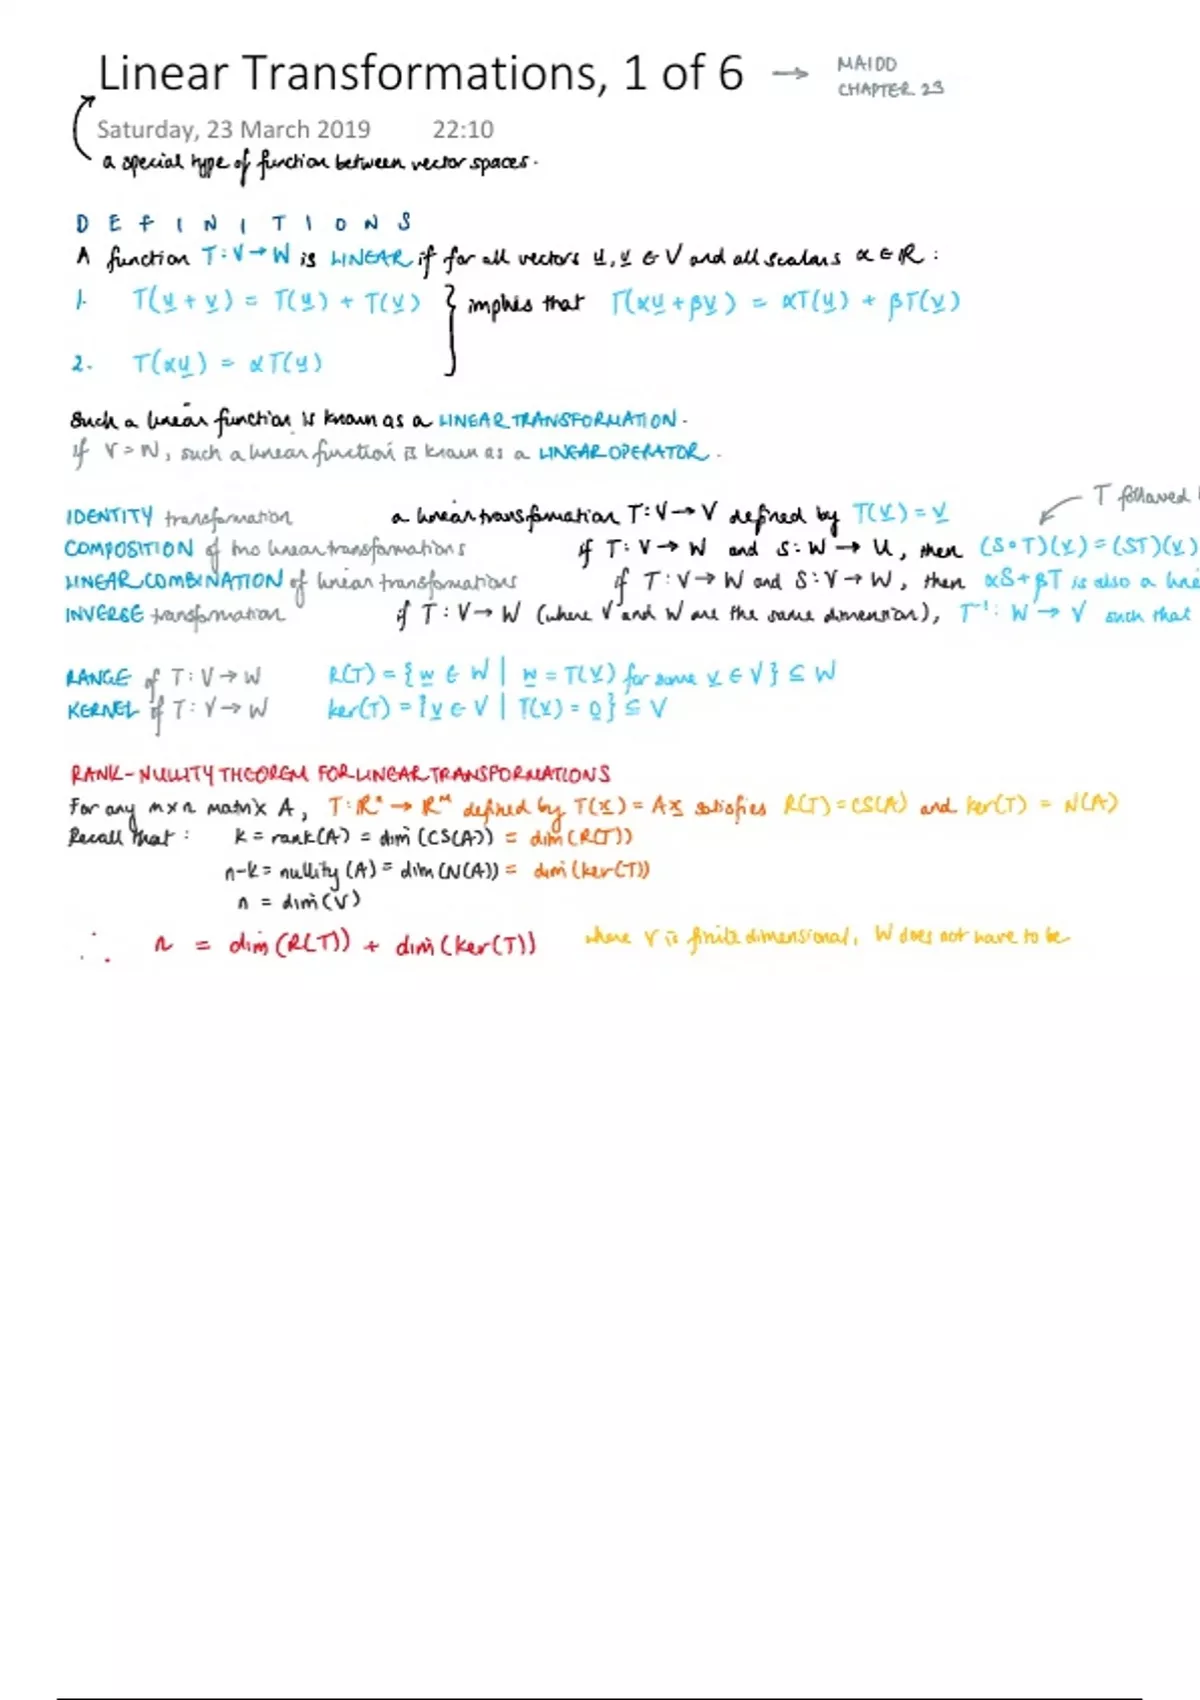 Linear Transformations, 1 of 6 → MA100
CHAPTER 23
Saturday, 23 March 2019 22:10
a special type of function between vector spaces.
DEFINITIONS
A function T:V→W is LINEAR if for all vectors u, v ∈ V and all scalars α ∈ ℝ :
1. T(u + v) = T(u) + T(v) } implies that T(αu + βv) = αT(u) + βT(v)
2. T(αu) = αT(u)
Such a linear function is known as a LINEAR TRANSFORMATION.
If V = W, such a linear function is known as a LINEAR OPERATOR.
T followed
IDENTITY transformation a linear transformation T:V→V defined by T(v) = v
COMPOSITION of two linear transformations if T:V→W and S:W→U, then (S∘T)(v) = (ST)(v)
LINEAR COMBINATION of linear transformations if T:V→W and S:V→W, then αS+βT is also a
INVERSE transformation if T:V→W (where V and W are the same dimension), T⁻¹: W→V such that
RANGE of T:V→W R(T) = {w ∈ W | w = T(v) for some v ∈ V} ⊆ W
KERNEL of T:V→W ker(T) = {v ∈ V | T(v) = 0} ⊆ V
RANK-NULLITY THEOREM FOR LINEAR TRANSFORMATIONS
For any m×n matrix A, T:ℝⁿ → ℝᵐ defined by T(x) = Ax satisfies R(T) = CS(A) and ker(T) = N(A)
Recall that : k = rank(A) = dim(CS(A)) = dim(R(T))
n-k = nullity(A) = dim(N(A)) = dim(ker(T))
n = dim(V)
∴ n = dim(R(T)) + dim(ker(T)) where V is finite dimensional, W does not have to be